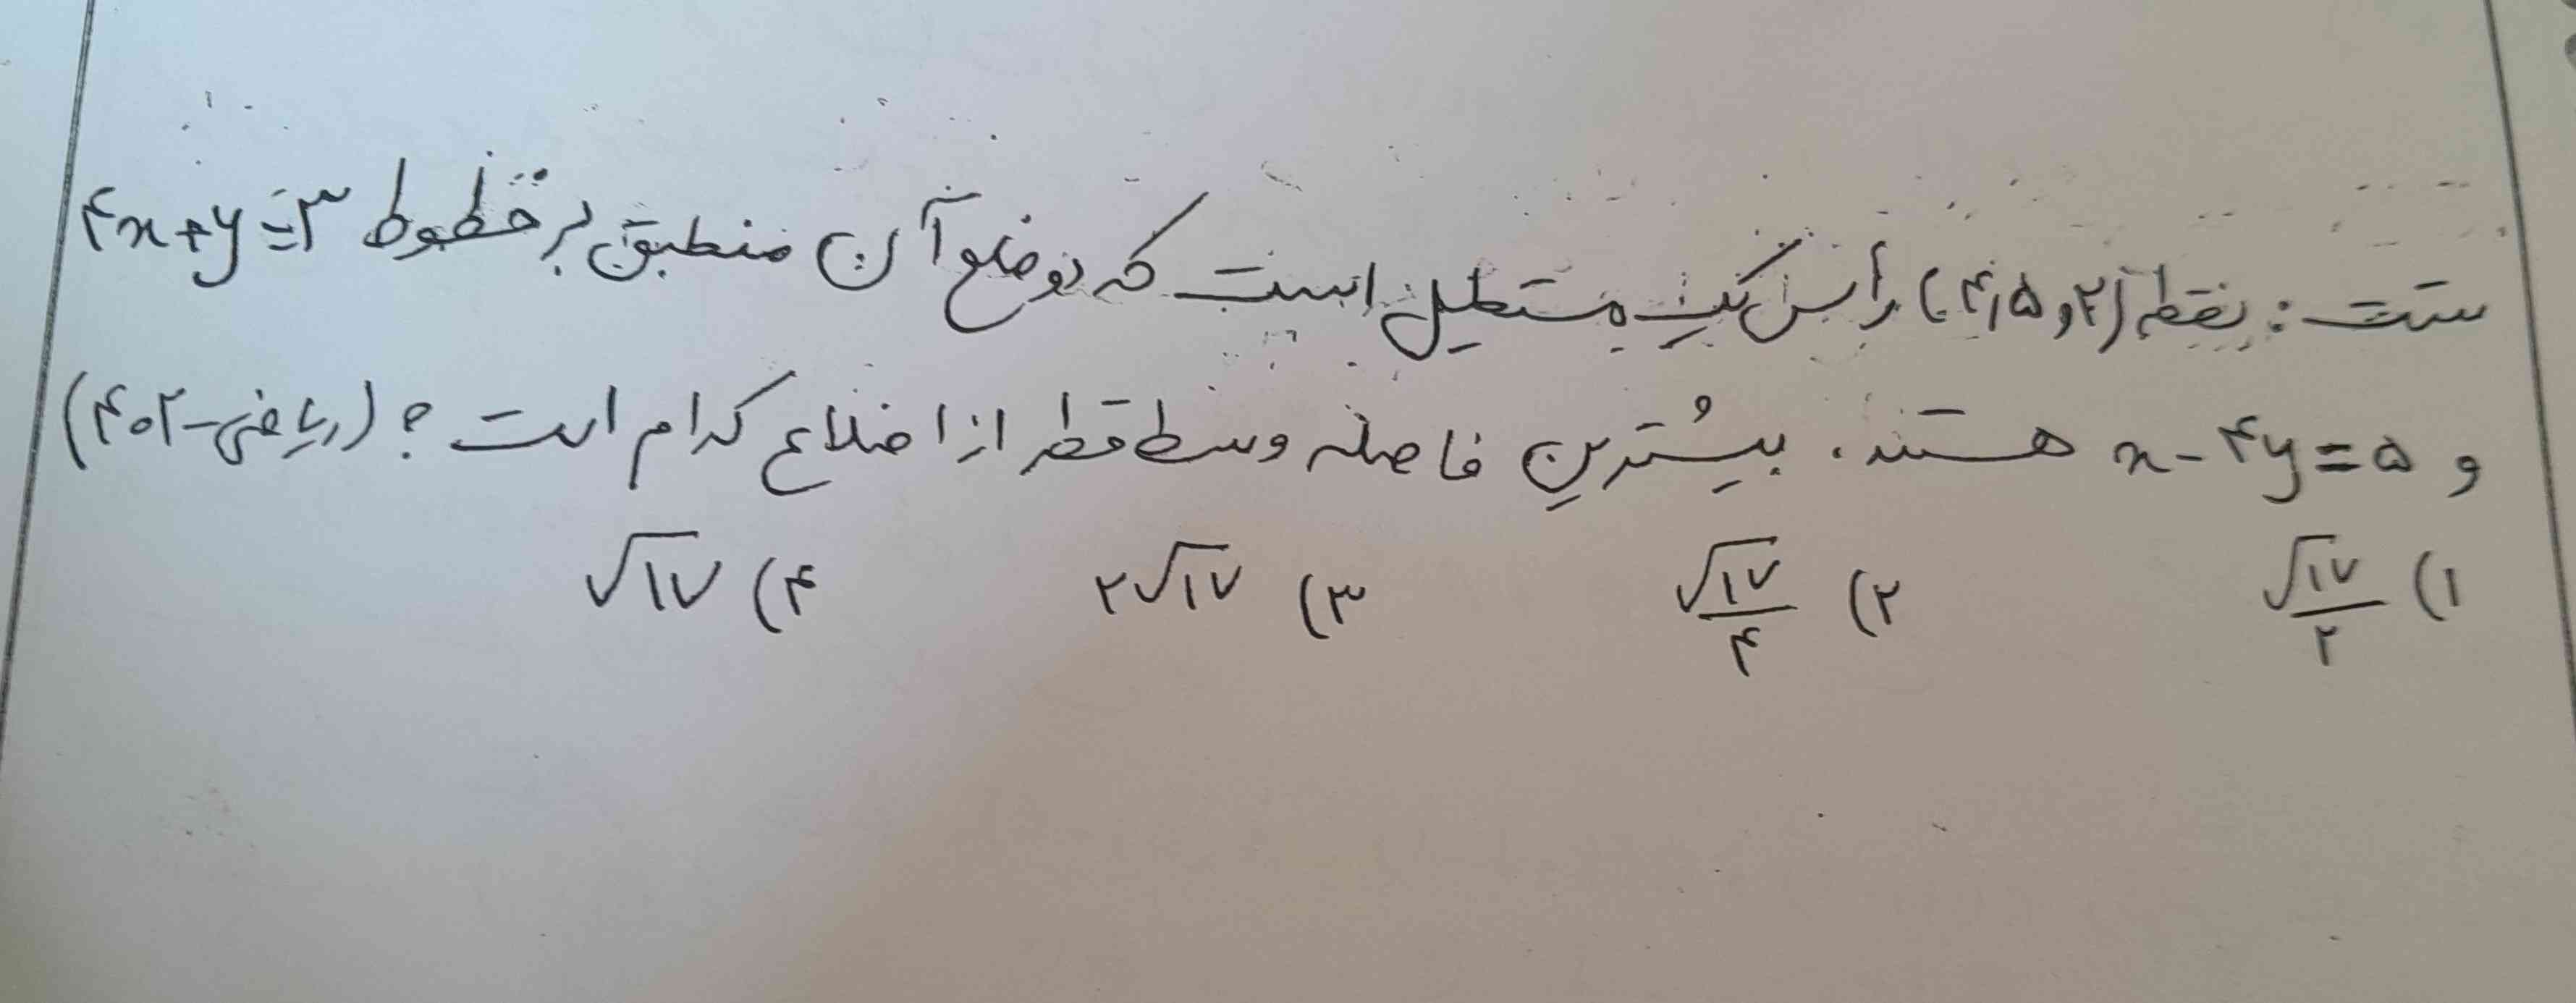 تست: نقطه (۲ و ۴٫۵) رأس یک مستطیل است که دو ضلع آن منطبق بر خطوط ۴x+y=۳
و x-۴y=۵ هستند. بیشترین فاصله وسط قطر از اضلاع کدام است؟ (ریاضی-۴۰۲)
۱) √۱۷/۲ ۲) √۱۷/۴ ۳) ۲√۱۷ ۴) √۱۷